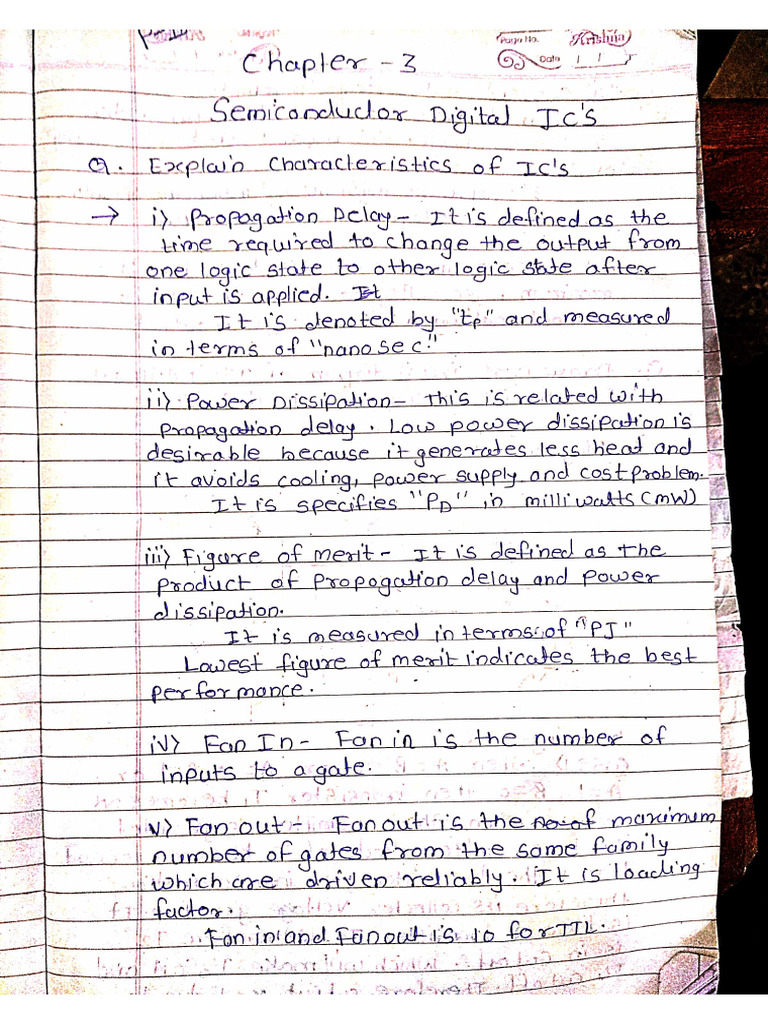 Page No.
Krishna
Date / /
Chapter - 3
Semiconductor Digital IC's
Q. Explain Characteristics of IC's
→ i) Propagation Delay - It is defined as the
time required to change the output from
one logic state to other logic state after
input is applied. It
It is denoted by "tp" and measured
in terms of "nano sec."
ii) Power Dissipation - This is related with
propagation delay. Low power dissipation is
desirable because it generates less heat and
it avoids cooling, power supply and cost problem.
It is specifies "PD" in milliwatts (mW)
iii) Figure of merit - It is defined as the
product of Propogation delay and power
dissipation.
It is measured in terms of "PJ"
Lowest figure of merit indicates the best
performance.
iv) Fan In - Fan in is the number of
inputs to a gate.
v) Fan out - Fan out is the no. of maximum
number of gates from the same family
which are driven reliably. It is loading
factor.
Fan in and Fan out is 10 for TTL.